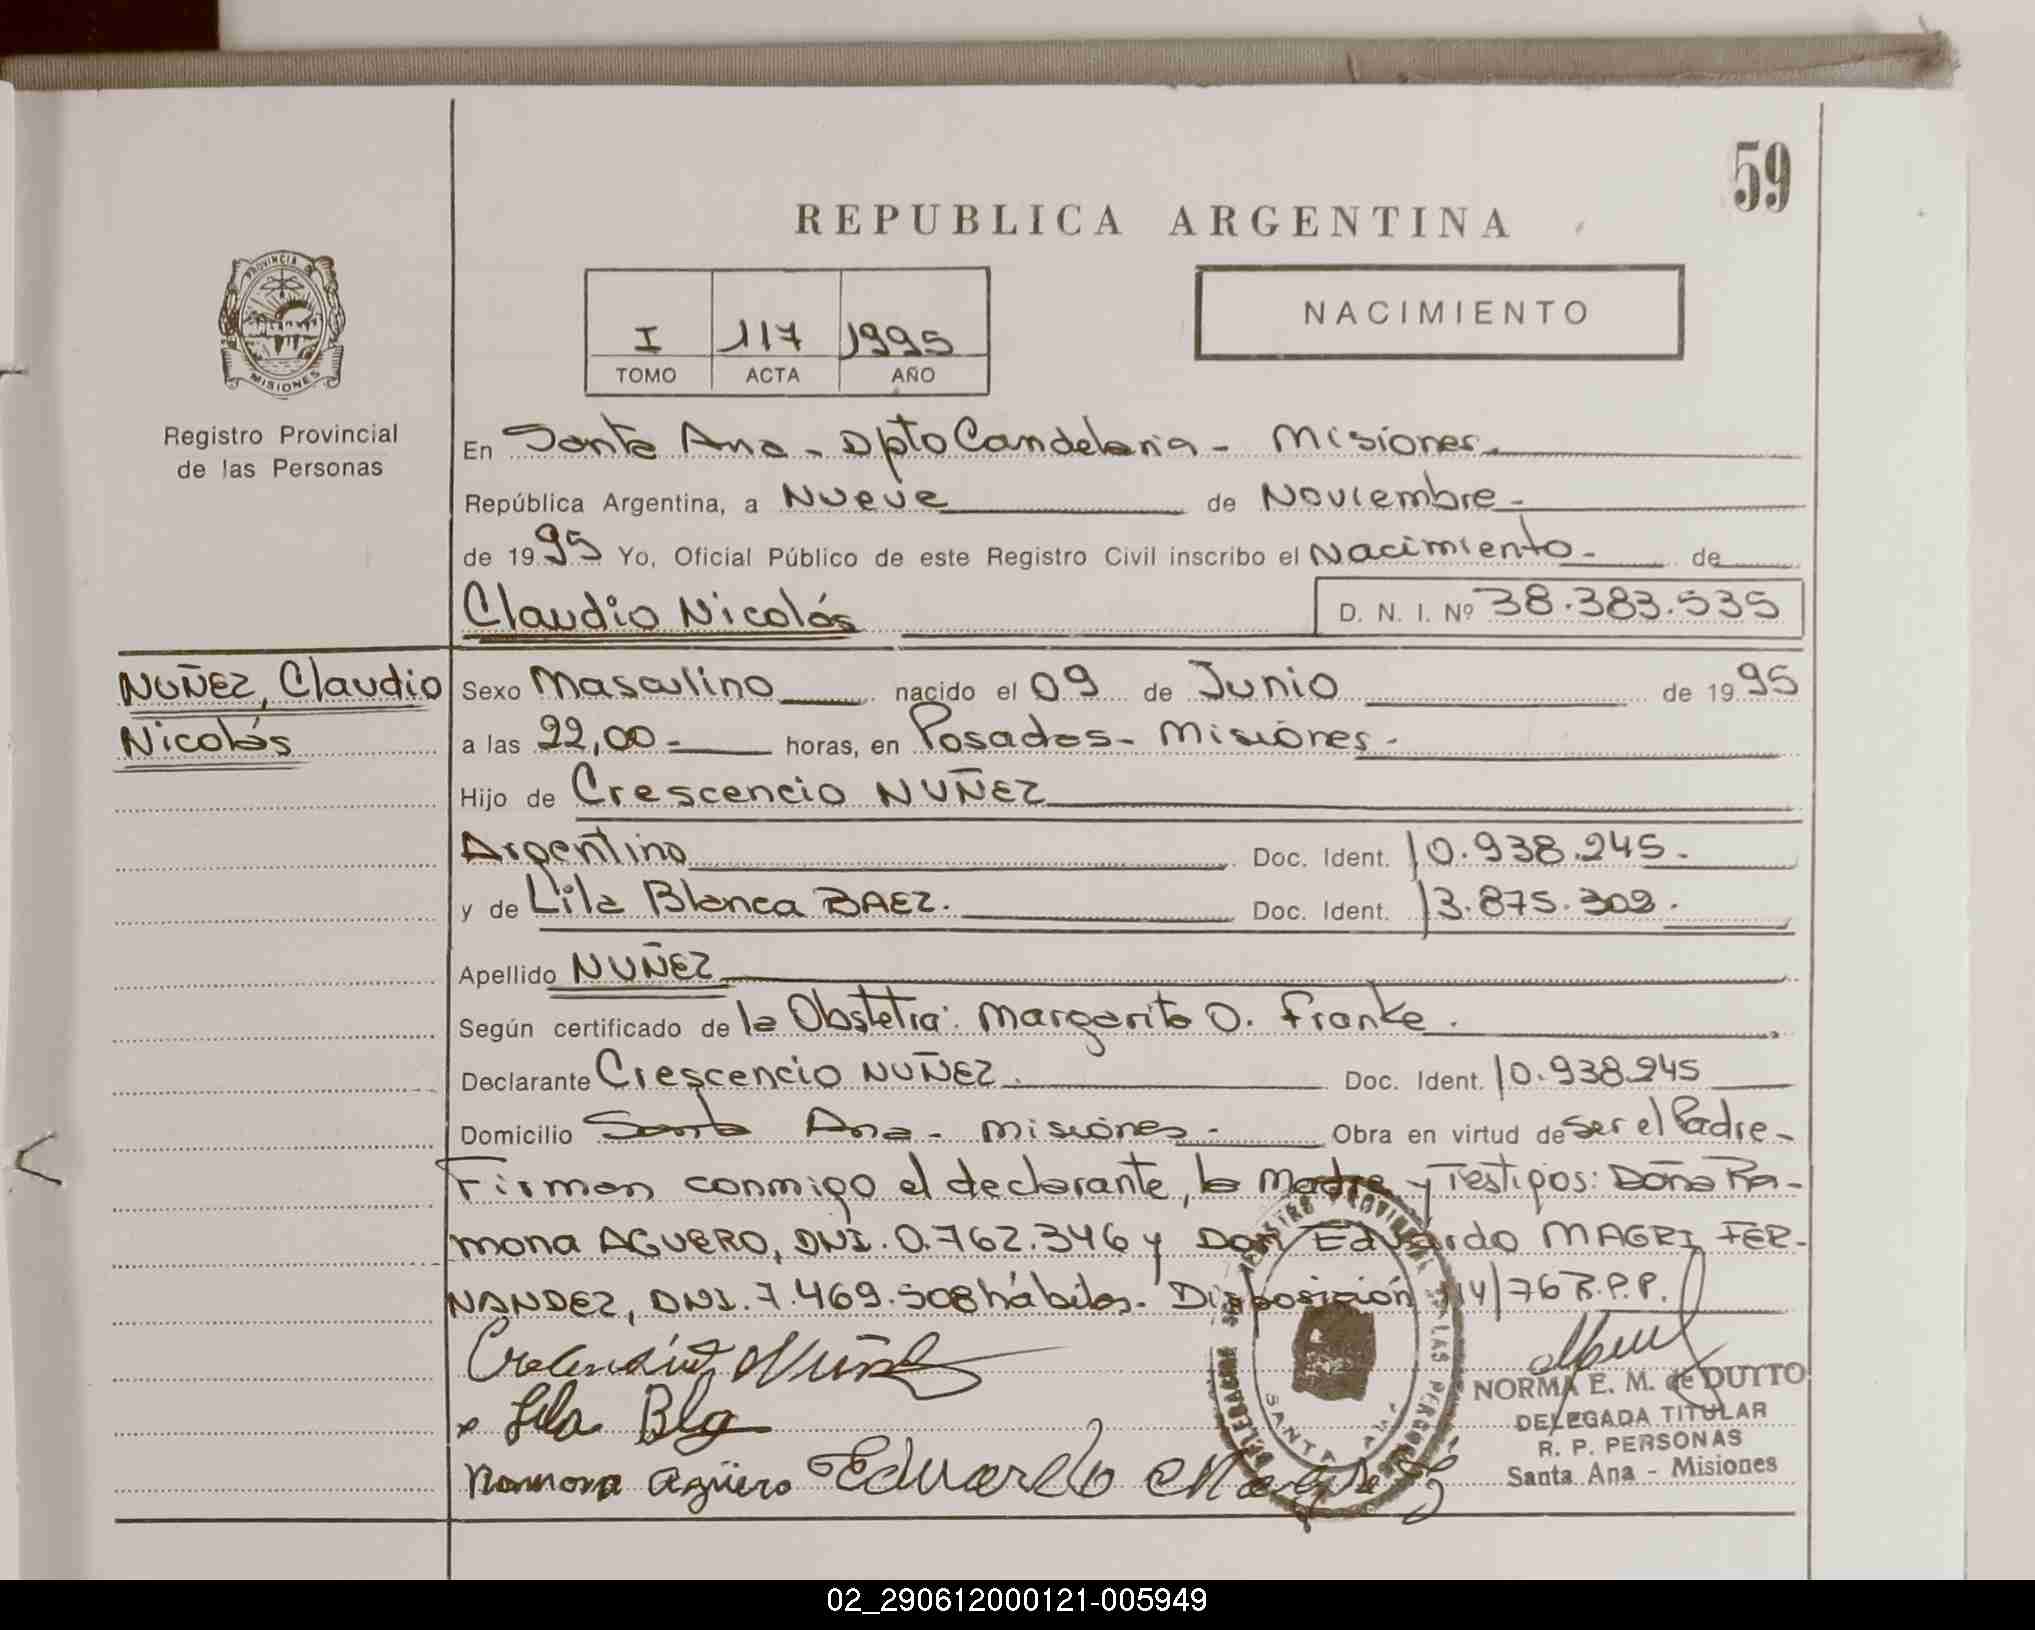 59
REPUBLICA ARGENTINA
PROVINCIA DE
MISIONES
Registro Provincial
de las Personas
I 117 1995
TOMO ACTA AÑO
NACIMIENTO
En Santa Ana - Dpto Candelaria - Misiones.
República Argentina, a Nueve de Noviembre -
de 1995 Yo, Oficial Público de este Registro Civil inscribo el Nacimiento - de
Claudio Nicolás D. N. I. Nº 38.383.535
NUÑEZ, Claudio
Nicolás
Sexo Masculino nacido el 09 de Junio de 1995
a las 22,00 - horas, en Posadas - Misiones -
Hijo de Crescencio NUÑEZ
Argentino Doc. Ident. 10.938.245 -
y de Lila Blanca BAEZ. Doc. Ident. 13.875.309 -
Apellido NUÑEZ
Según certificado de la Obstetra: Margarita O. Franke.
Declarante Crescencio NUÑEZ. Doc. Ident. 10.938.245
Domicilio Santa Ana - Misiones - Obra en virtud de ser el Padre -
Firman conmigo el declarante, la Madre y Testigos: Doña Ra-
mona AGUERO, DNI. 0.762.346 y Don Eduardo MAGRI FER-
NANDEZ, DNI. 7.469.508 hábiles - Disposición 114/76 R.P.P.
Lila
Ramona Agüero Eduardo
SANTA ANA
NORMA E. M. de DUTTO
DELEGADA TITULAR
R. P. PERSONAS
Santa Ana - Misiones
02_290612000121-005949